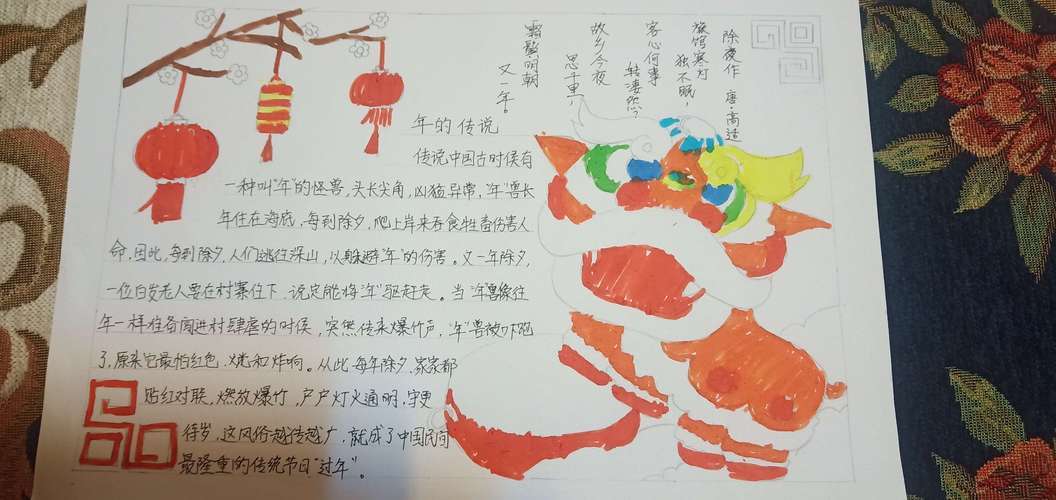 除夜作 唐·高适
旅馆寒灯
独不眠，
客心何事
转凄然？
故乡今夜
思千里，
霜鬓明朝
又一年。
年的传说
传说中国古时侯有
一种叫"年"的怪兽，头长尖角，凶猛异常，"年"兽长
年住在海底，每到除夕，爬上岸来吞食牲畜伤害人
命，因此，每到除夕，人们逃往深山，以躲避"年"的伤害。又一年除夕，
一位白发老人要在村寨住下，说定能将"年"驱赶走。当"年"兽像往
年一样准备闯进村肆虐的时候，突然传来爆竹声，"年"兽被吓跑
了，原来它最怕红色、火光和炸响。从此每年除夕，家家都
贴红对联，燃放爆竹，户户灯火通明，守更
待岁，这风俗越传越广，就成了中国民间
最隆重的传统节日"过年"。